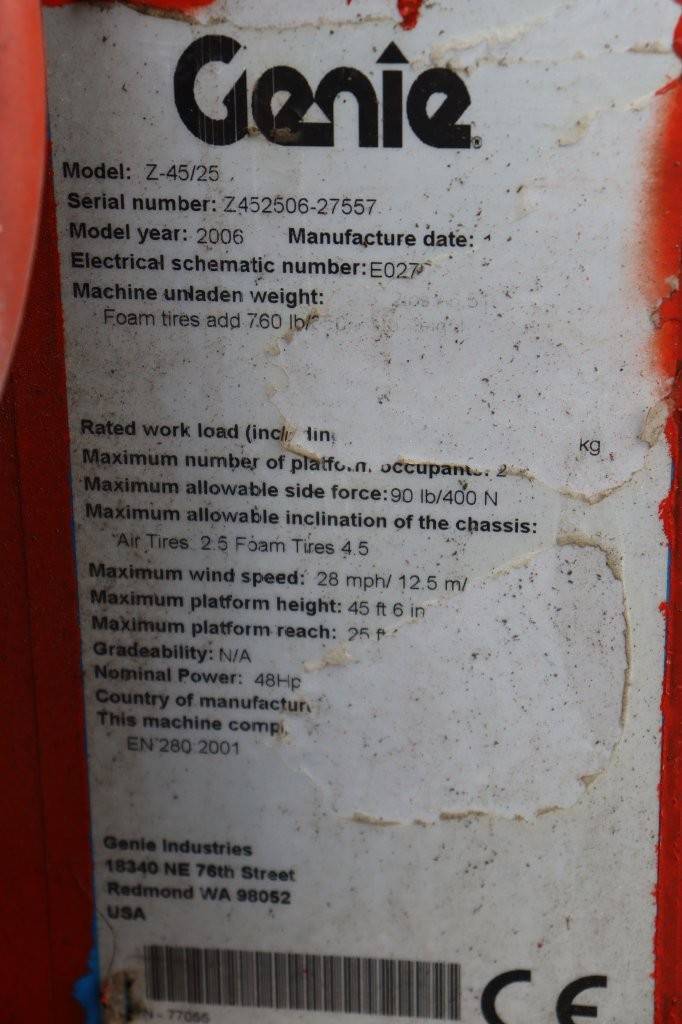 Genie
Model: Z-45/25
Serial number: Z452506-27557
Model year: 2006 Manufacture date:
Electrical schematic number: E027
Machine unladen weight:
Foam tires add 760 lb/
Rated work load
kg
Maximum number of platform occupants: 2
Maximum allowable side force: 90 lb/400 N
Maximum allowable inclination of the chassis:
Air Tires 2.5 Foam Tires 4.5
Maximum wind speed: 28 mph/ 12.5 m/
Maximum platform height: 45 ft 6 in
Maximum platform reach: 25 ft
Gradeability: N/A
Nominal Power: 48Hp
Country of
This machine
EN 280:2001
Genie Industries
18340 NE 76th Street
Redmond WA 98052
USA
CE